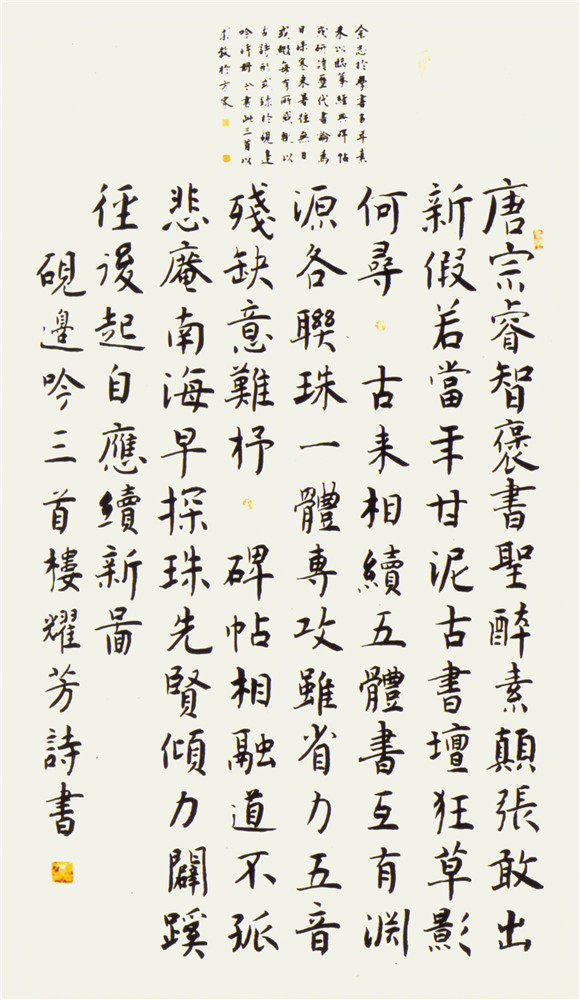 余志於學書多年素
来以臨摹經典碑帖
或研讀歷代書論為
日課寒来暑往無日
或輟每有所感輒以
古詩形式錄於硯邊
吟詩冊今書此三首以
求教於方家
唐宗睿智褒書聖醉素顛張敢出
新假若當年甘泥古書壇狂草影
何尋 古来相續五體書互有淵
源各聯珠一體專攻雖省力五音
殘缺意難杼 碑帖相融道不孤
悲庵南海早探珠先賢傾力闢蹊
徑後起自應續新啚
硯邊吟三首樓耀芳詩書